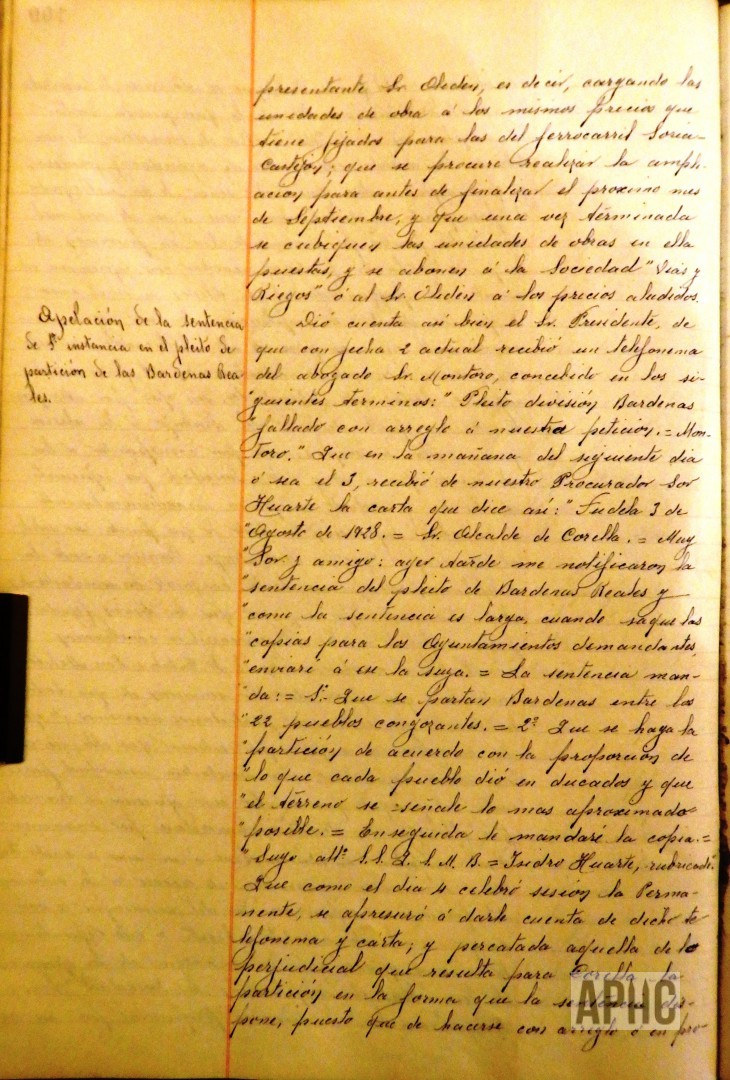 presentante Sr. Oleden, es decir, cargando las
unidades de obra á los mismos precio que
tiene fijados para las del ferrocarril Soria-
Castejon; que se procure realizar la ampli-
acion para antes de finalizar el proximo mes
de Septiembre, y que una vez terminada
se cubiquen las unidades de obras en ella
puestas, y se abonen á la Sociedad "Vias y
Riegos" ó al Sr. Oleden á los precios aludidos.
Apelación de la sentencia
de 1ª instancia en el pleito de
partición de las Bardenas Rea-
les.
Dió cuenta asi bien el Sr. Presidente, de
que con fecha 2 actual recibió un telefonema
del abogado Sr. Montoro, concebido en los si-
guientes terminos: "Pleito división Bardenas
"fallado con arreglo á nuestra petición. = Mon-
toro." Que en la mañana del siguiente dia
ó sea el 3, recibió de nuestro Procurador Sor
Huarte la carta que dice así: "Tudela 3 de
"Agosto de 1928. = Sr. Alcalde de Corella. = Muy
"Sor. y amigo: ayer tarde me notificaron la
"sentencia del pleito de Bardenas Reales y
"como la sentencia es larga, cuando saque las
"copias para los Ayuntamientos demandantes,
"enviaré á ese la suya. = La sentencia man-
"da: = 1º Que se partan Bardenas entre los
"22 pueblos congozantes. = 2º Que se haga la
"partición de acuerdo con la proporcion de
"lo que cada pueblo dió en ducados y que
"el terreno se señale lo mas aproximado
"posible. = En seguida le mandaré la copia. =
"Suyo attº S. S. Q. E. S. M. B. = Isidro Huarte, rubricado".
Que como el dia 4 celebró sesión la Perma-
nente, se apresuró á darle cuenta de dicho te-
lefonema y carta; y percatada aquella de lo
perjudicial que resulta para Corella la
partición en la forma que la sentencia dis-
pone, puesto que de hacerse con arreglo ó en pro-
APHC